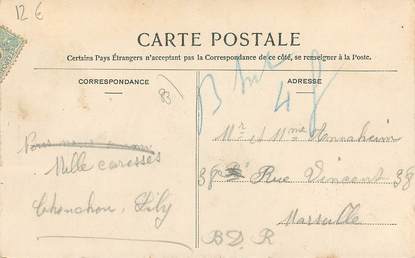 12 €
CARTE POSTALE
Certains Pays Étrangers n'acceptant pas la Correspondance de ce côté, se renseigner à la Poste.
CORRESPONDANCE
ADRESSE
83
4
Mille caresses
Lily
Mr et Mme Hennaheim
38 Rue Vincent 38
Marseille
B. D. R